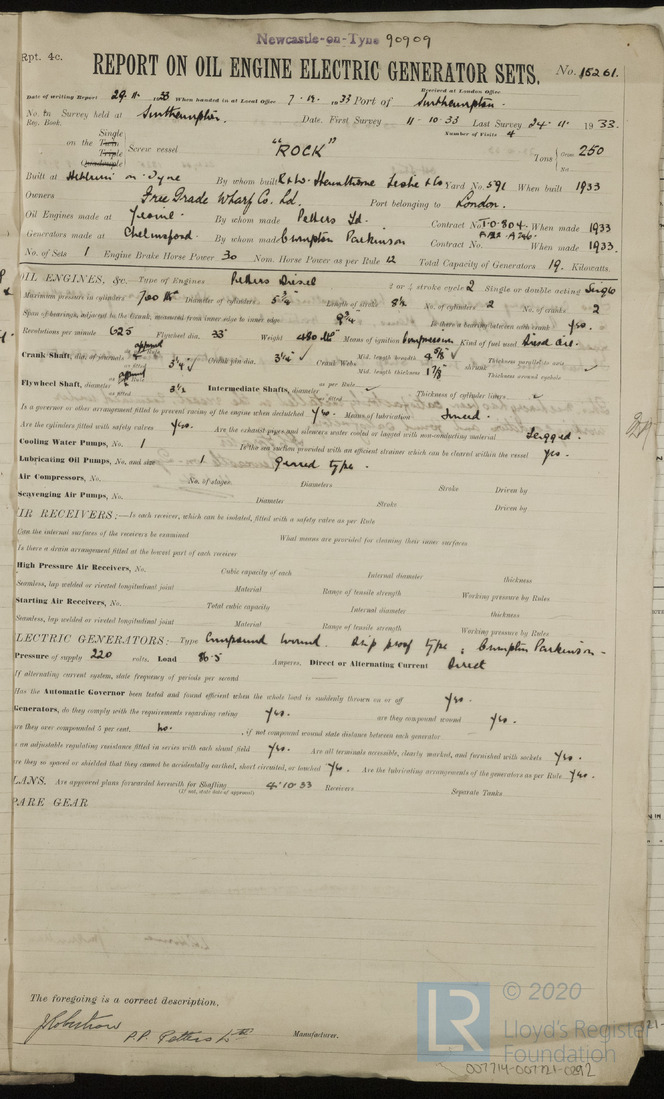 Newcastle-on-Tyne 90909
Rpt. 4c.
REPORT ON OIL ENGINE ELECTRIC GENERATOR SETS. No. 15261.
Received at London Office
Date of writing Report 29. 11. 1933 When handed in at Local Office 7. 12. 1933 Port of Southampton.
No. in Survey held at Southampton. Date. First Survey 11-10-33 Last Survey 24-11- 1933.
Reg. Book. Number of Visits 4
Single
on the Twin
Triple
Quadruple
Screw vessel "ROCK" Tons Gross 250
Net
Built at Hebburn on Tyne By whom built R & W. Hawthorne Leslie & Co Yard No. 591 When built 1933
Owners Free Grade Wharf Co. Ld. Port belonging to London.
Oil Engines made at Yeovil. By whom made Petters Ld. Contract No. When made 1933
Generators made at Chelmsford. By whom made Crompton Parkinson Contract No. When made 1933.
No. of Sets 1 Engine Brake Horse Power 30 Nom. Horse Power as per Rule 12 Total Capacity of Generators 19. Kilowatts.
OIL ENGINES, &c. Type of Engines Petters Diesel 2 or 4 stroke cycle 2 Single or double acting Single
Maximum pressure in cylinders 700 Diameter of cylinders 5 3/4" Length of stroke 8 1/2 No. of cylinders 2 No. of cranks 2
Span of bearings, adjacent to the Crank, measured from inner edge to inner edge 9 3/4" Is there a bearing between each crank yes.
Revolutions per minute 625 Flywheel dia. 33" Weight 480 Means of ignition Compression Kind of fuel used Diesel Oil.
Crank Shaft, dia. of journals as per Rule approved as fitted 3 1/4" Crank pin dia. 3 1/4" Crank Webs Mid. length breadth 4 5/8" Mid. length thickness 1 7/8" shrunk Thickness parallel to axis Thickness around eyehole
Flywheel Shaft, diameter as per Rule approved as fitted 3 1/2 Intermediate Shafts, diameter as per Rule as fitted Thickness of cylinder liners
Is a governor or other arrangement fitted to prevent racing of the engine when declutched Yes. Means of lubrication Forced.
Are the cylinders fitted with safety valves Yes. Are the exhaust pipes and silencers water cooled or lagged with non-conducting material Lagged.
Cooling Water Pumps, No. 1 Is the sea suction provided with an efficient strainer which can be cleared within the vessel yes.
Lubricating Oil Pumps, No. and size 1 Geared type.
Air Compressors, No. No. of stages Diameters Stroke Driven by
Scavenging Air Pumps, No. Diameter Stroke Driven by
AIR RECEIVERS:—Is each receiver, which can be isolated, fitted with a safety valve as per Rule
Can the internal surfaces of the receivers be examined What means are provided for cleaning their inner surfaces
Is there a drain arrangement fitted at the lowest part of each receiver
High Pressure Air Receivers, No. Cubic capacity of each Internal diameter thickness
Seamless, lap welded or riveted longitudinal joint Material Range of tensile strength Working pressure by Rules
Starting Air Receivers, No. Total cubic capacity Internal diameter thickness
Seamless, lap welded or riveted longitudinal joint Material Range of tensile strength Working pressure by Rules
ELECTRIC GENERATORS:—Type Compound wound. drip proof type; Crompton Parkinson-
Pressure of supply 220 volts. Load 86.5 Amperes. Direct or Alternating Current Direct
If alternating current, state frequency of periods per second
Has the Automatic Governor been tested and found efficient when the whole load is suddenly thrown on or off yes.
Generators, do they comply with the requirements regarding rating yes. are they compound wound yes.
are they over compounded 5 per cent. no. , if not compound wound state distance between each generator
is an adjustable regulating resistance fitted in series with each shunt field yes. Are all terminals accessible, clearly marked, and furnished with sockets yes.
are they so spaced or shielded that they cannot be accidentally earthed, short circuited, or touched yes. Are the lubricating arrangements of the generators as per Rule yes.
PLANS. Are approved plans forwarded herewith for Shafting 4.10.33 Receivers Separate Tanks
(If not, state date of approval)
SPARE GEAR
The foregoing is a correct description,
P.P. Petters Ltd Manufacturer.
LR © 2020
Lloyd's Register
Foundation
007714-007721-0292